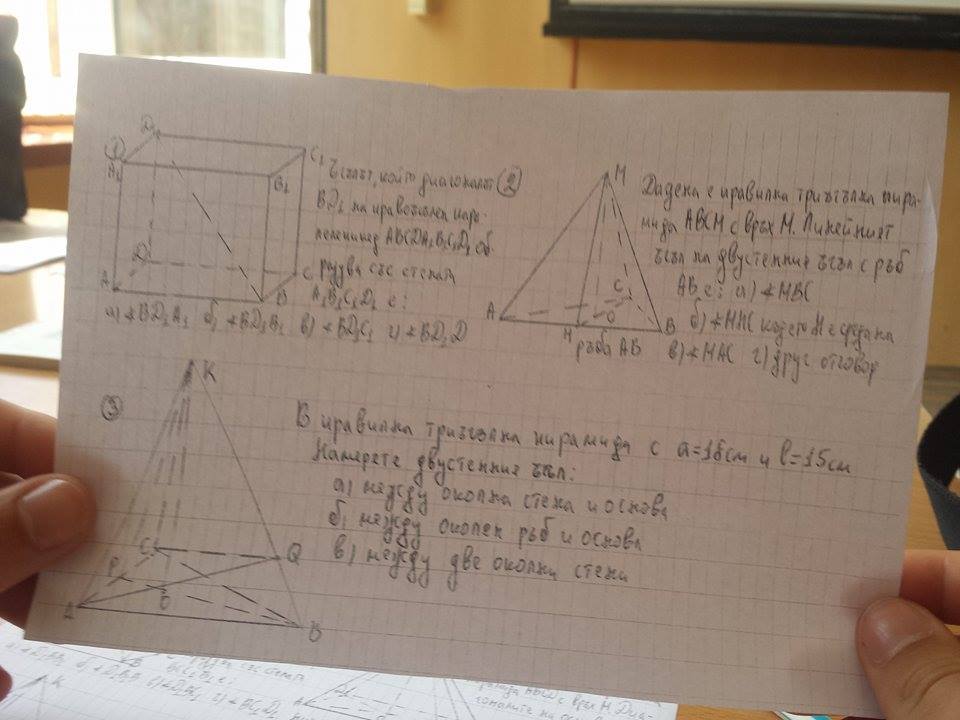 ①
D₁
A₁
C₁
B₁
D
A
C
B
Ъгълът, който диагоналът
BD₁ на правоъгълен паралелепипед ABCDA₁B₁C₁D₁ об-
разува със стената
A₁B₁C₁D₁ е:
а) ∢BD₁A₁ б) ∢BD₁B₁ в) ∢BD₁C₁ г) ∢BD₁D
②
M
A
C
O
H
B
Дадена е правилна триъгълна пира-
мида ABCM с връх M. Линейният
ъгъл на двустенния ъгъл с ръб
AB е: а) ∢MBC
б) ∢MHC където H е среда на
ръба AB в) ∢MAC г) друг отговор
③
K
C
Q
P
O
A
B
В правилна триъгълна пирамида с a=18см и l=15см
Намерете двустенния ъгъл:
а) между околна стена и основа
б) между околен ръб и основа
в) между две околни стени